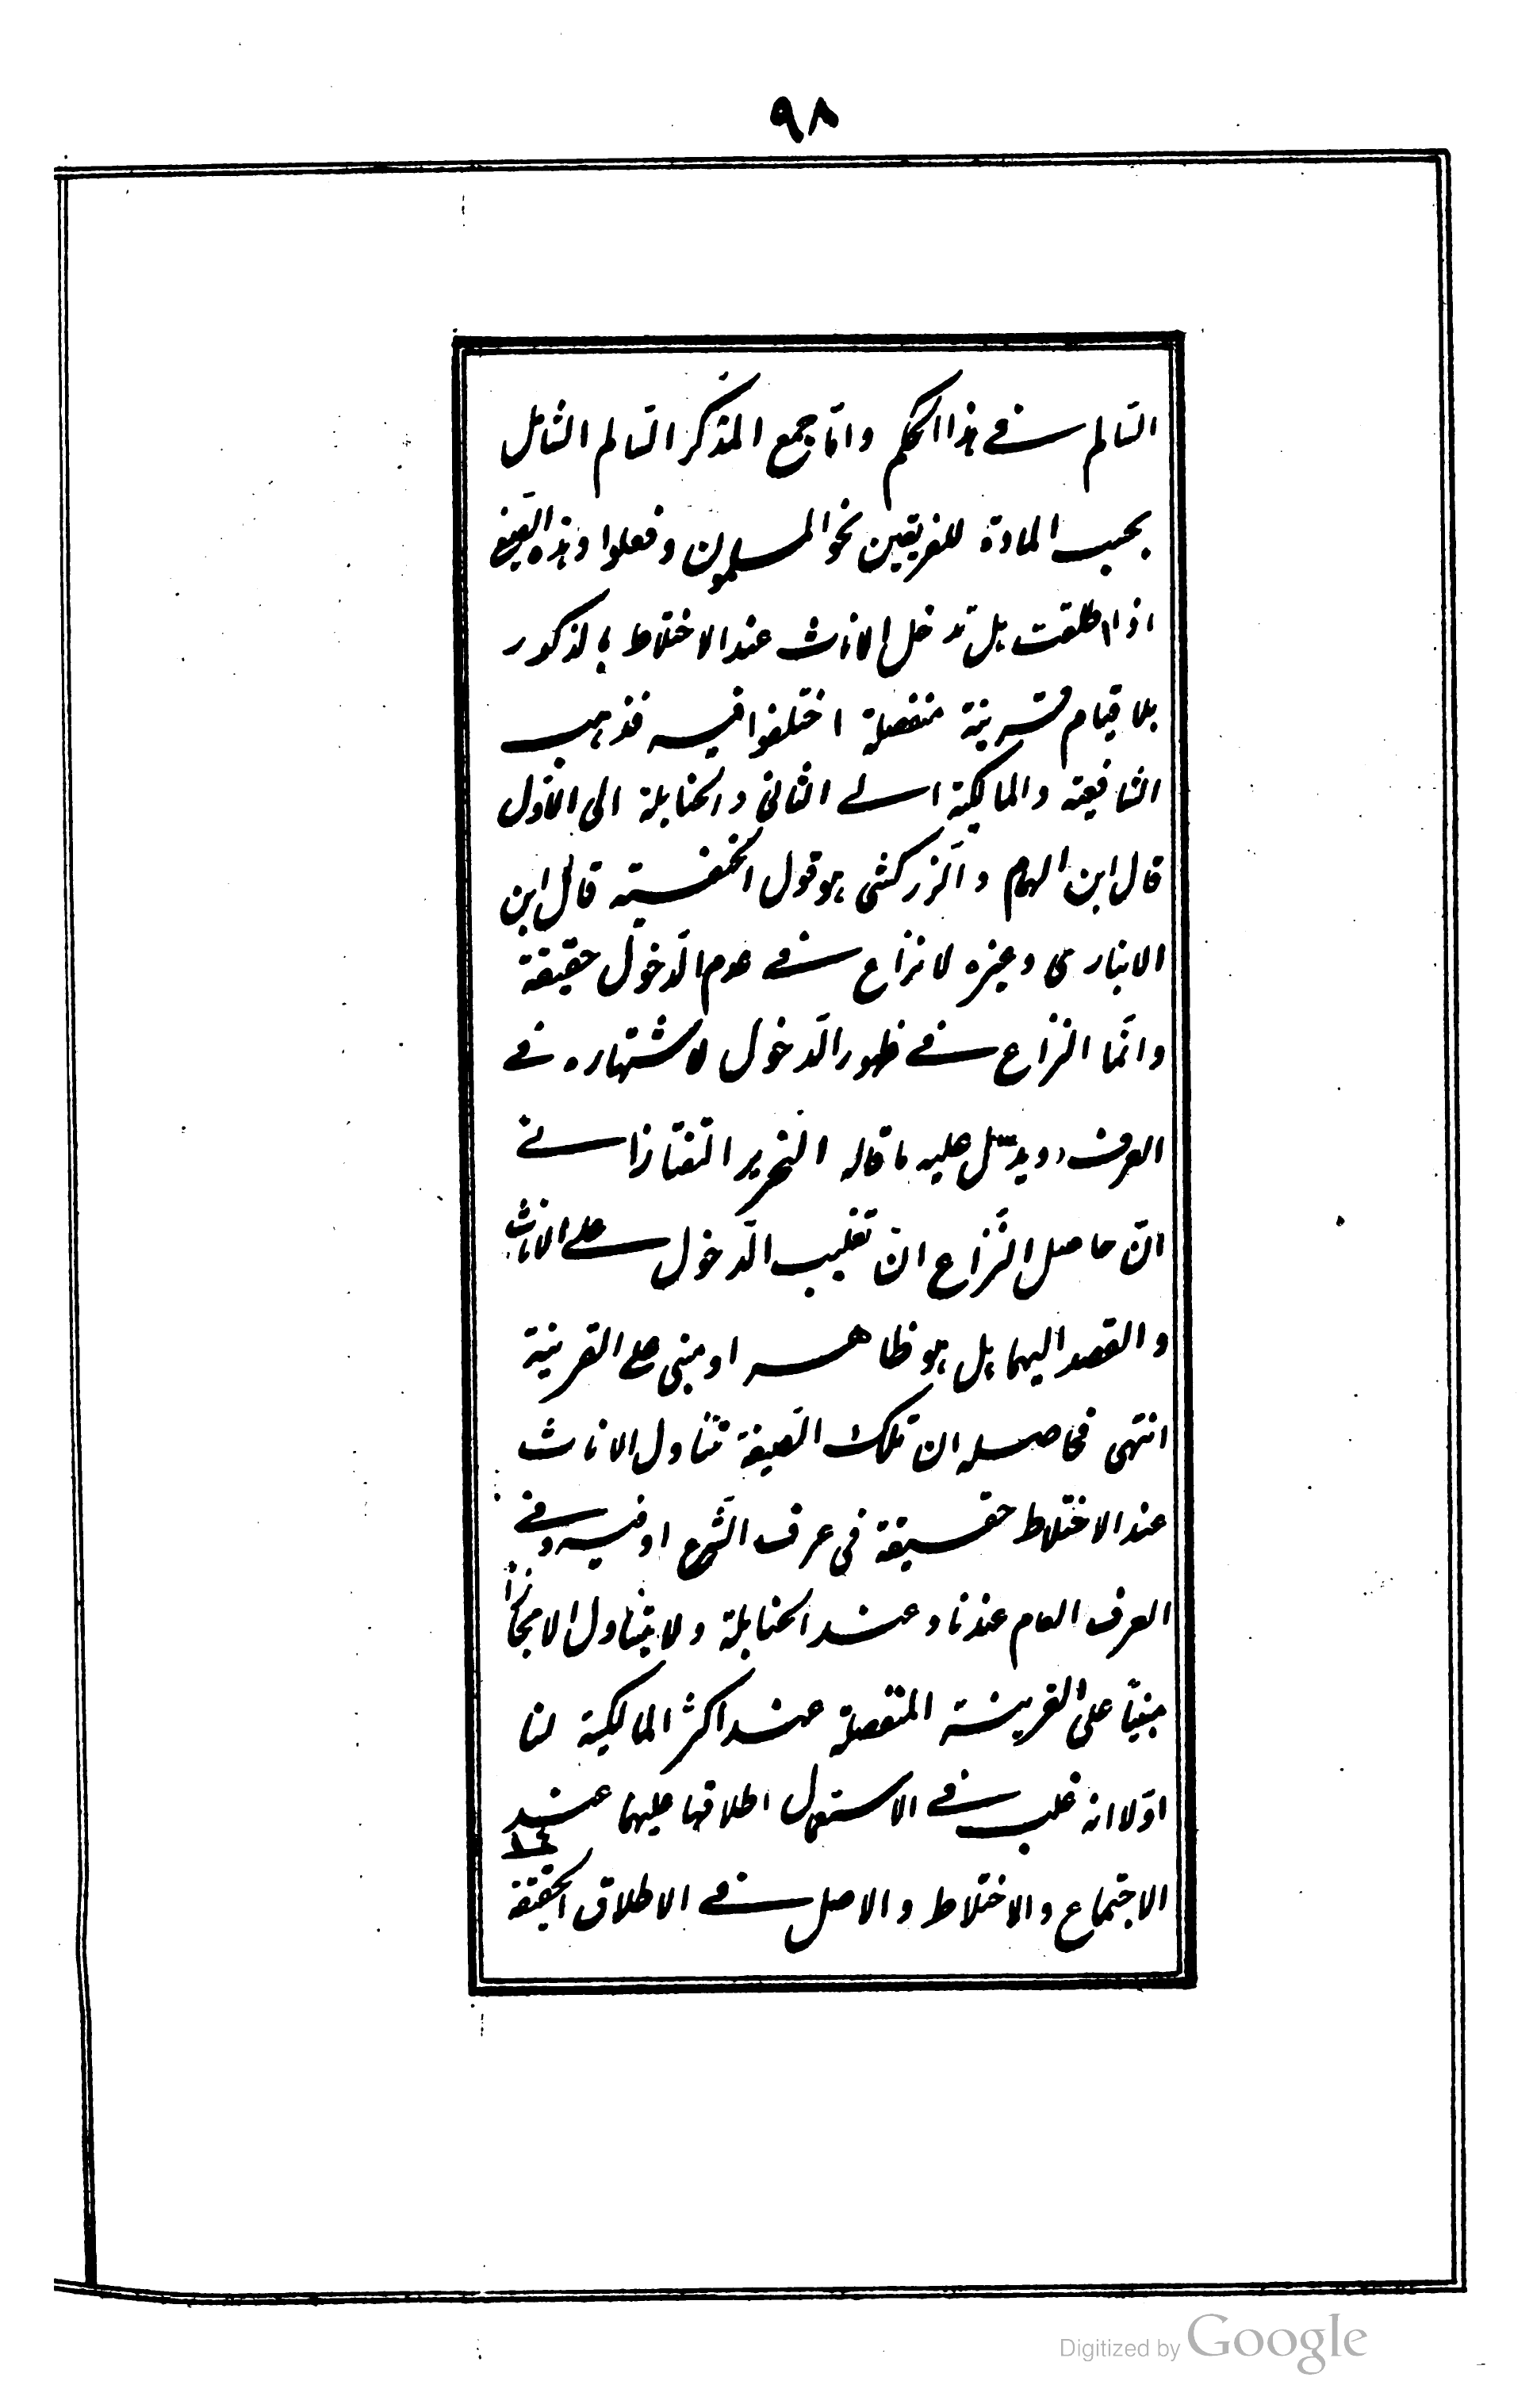 ٩٨
السّالم في هذا الحكم وامّا جمع المذكر السّالم الشامل
بحسب المادة للفريقين نحو المسلمون وفعلوا وهذه الصّيغ
اذا اطلقت هل تدخل الاناث عند الاختلاط بالذكور
بلا قيام قرينة منفصلة اختلفوا فيه فذهب
الشافعية والمالكية الى الثانى والحنابلة الى الاوّل
قال ابن الهمام والزركشى هو قول الحنفية قال ابن
الانبارى وغيره لا نزاع في عدم الدّخول حقيقة
وانّما النزاع في ظهور الدّخول لاشتهاره في
العرف ويدلّ عليه ما قاله النحرير التفتازاني
انّ حاصل النّزاع انّ تغليب الدّخول على الاناث
والقصد اليهما هل هو ظاهر او مبنى على القرينة
انتهى فحاصله ان تلك الصّيغة تتناول الاناث
عند الاختلاط حقيقة في عرف الشّرع او فيه وفي
العرف العام عندنا وعند الحنابلة ولا يتناول الا مجازاً
مبنيّاً على القرينة المنفصلة عند اكثر المالكية لنا
اوّلا انه غلب في الاستعمال اطلاقها عليهما عند
الاجتماع والاختلاط والاصل في الاطلاق الحقيقة
Digitized by Google